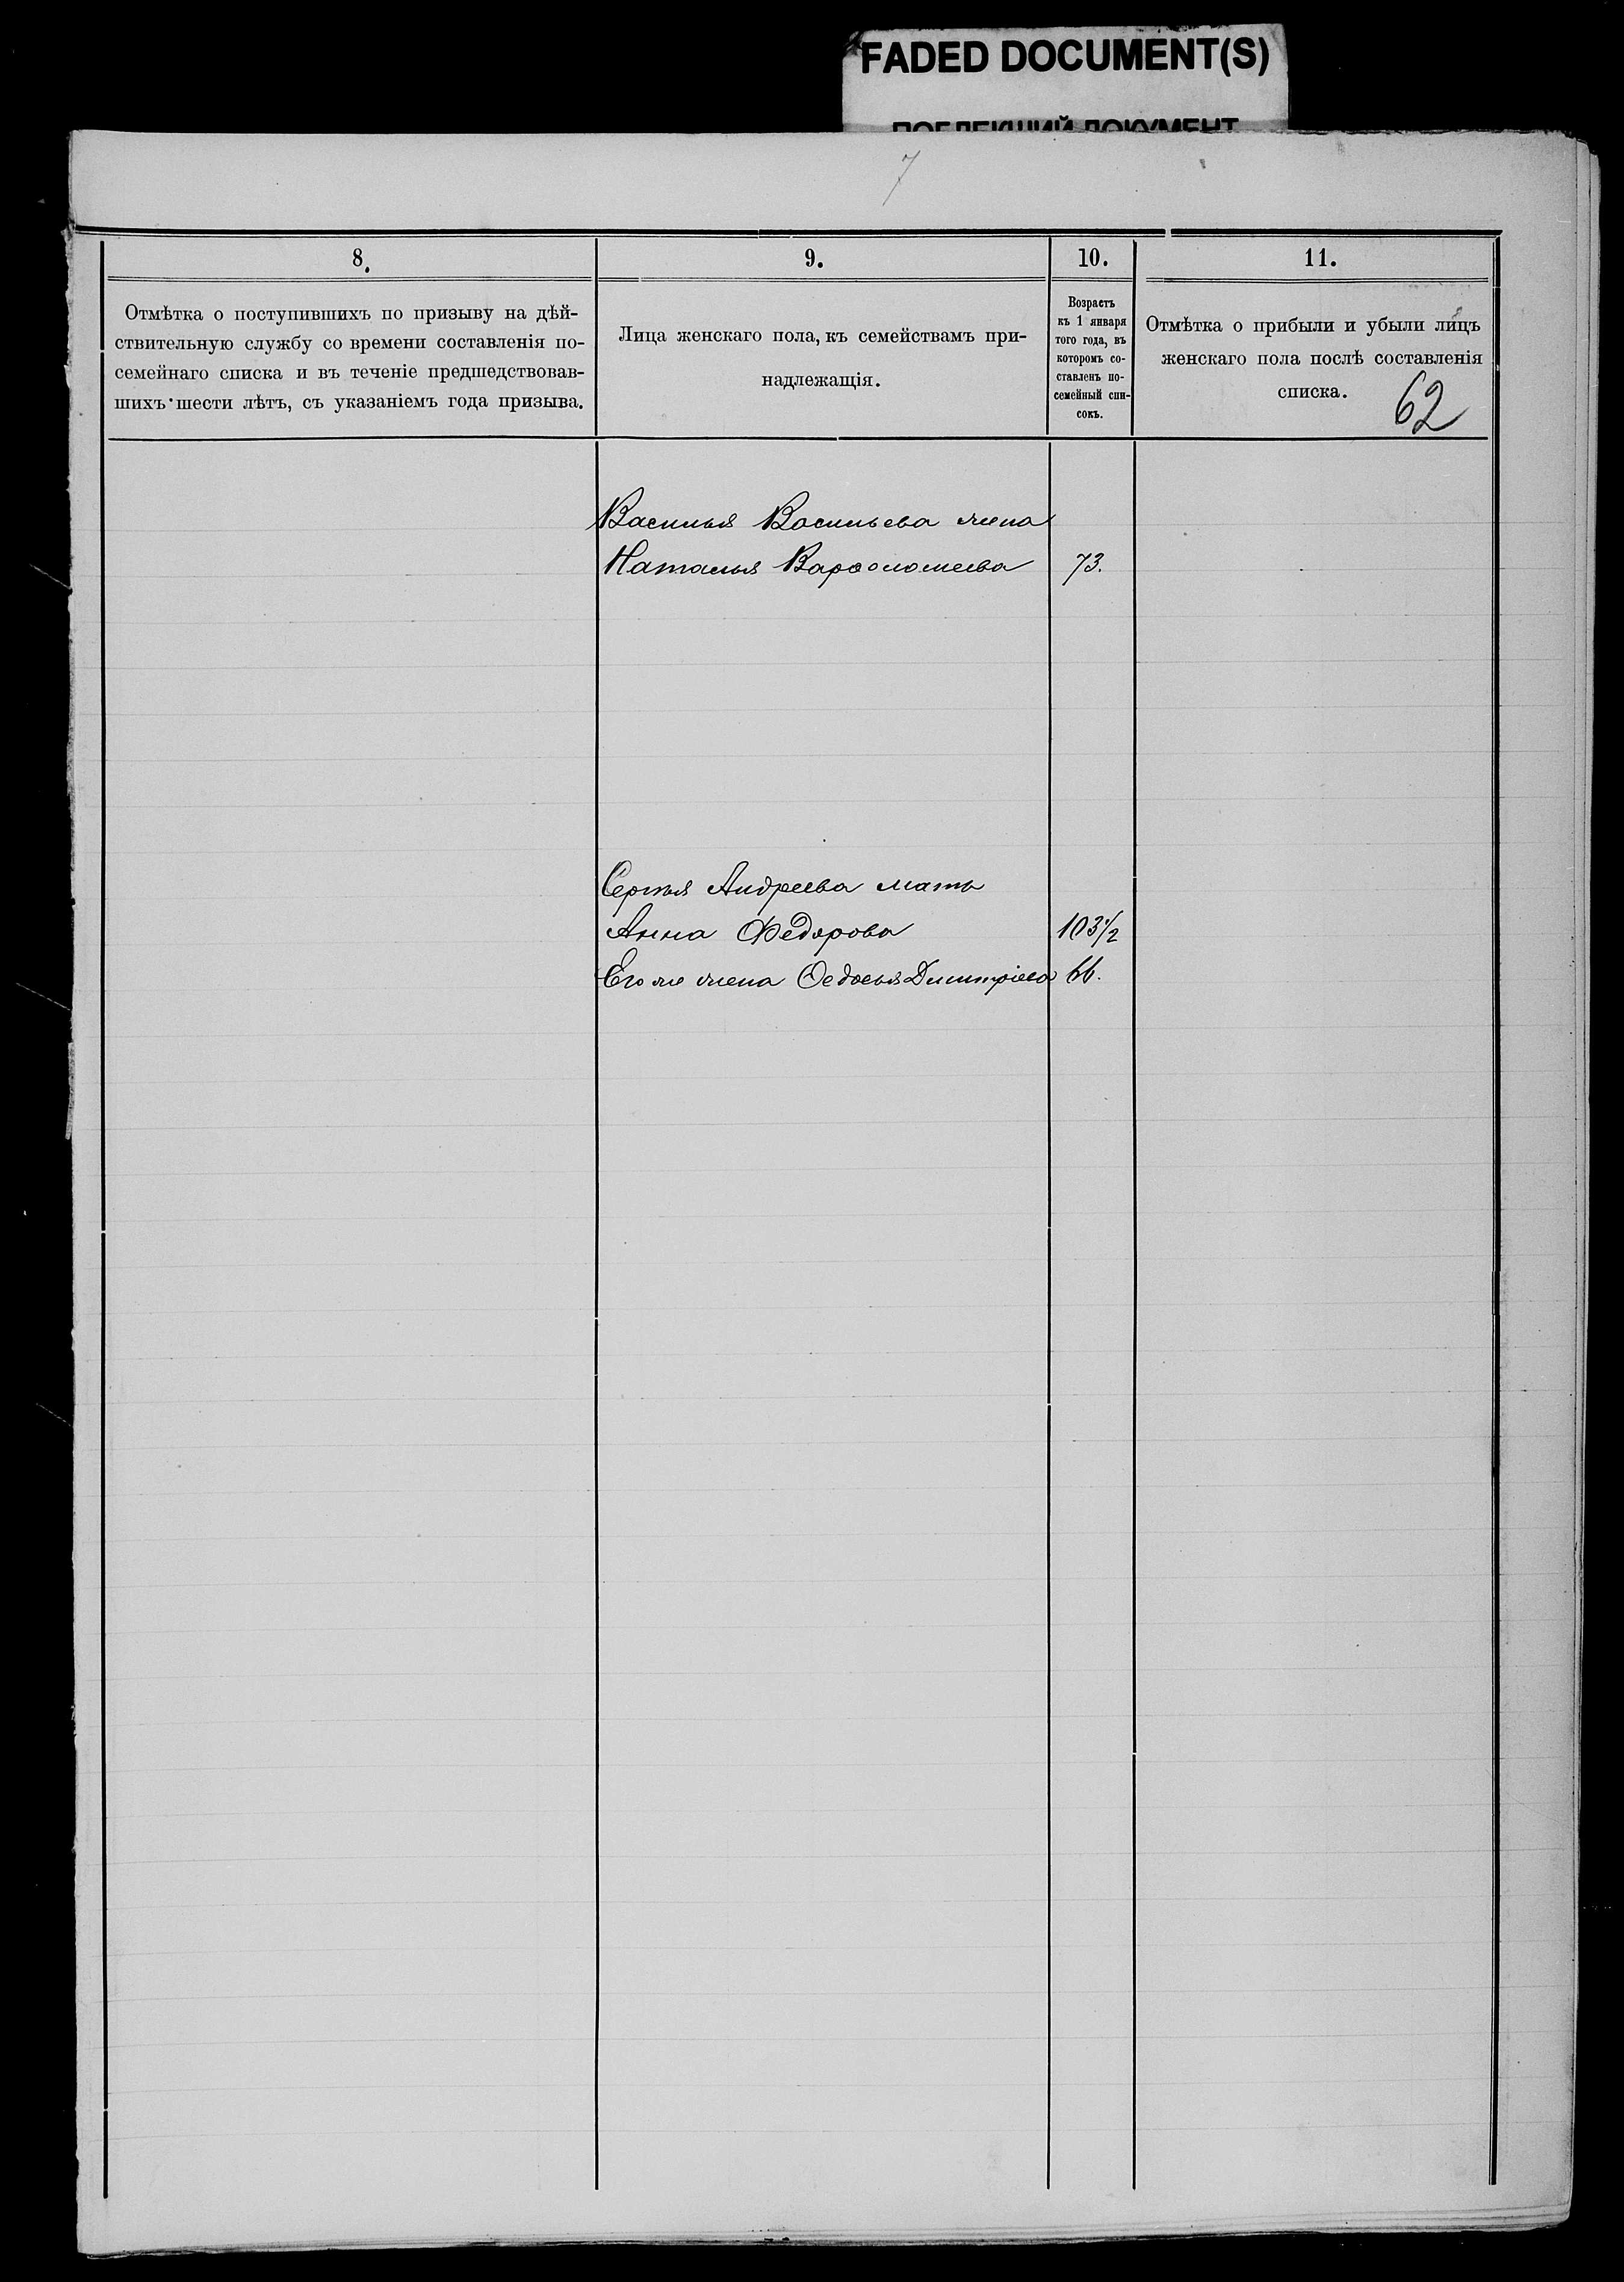 FADED DOCUMENT(S)
ПОБЛЕКШИЙ ДОКУМЕНТ
7
8.
Отмѣтка о поступившихъ по призыву на дѣй-
ствительную службу со времени составленія по-
семейнаго списка и въ теченіе предшедствовав-
шихъ шести лѣтъ, съ указаніемъ года призыва.
9.
Лица женскаго пола, къ семействамъ при-
надлежащія.
10.
Возрастъ
къ 1 января
того года, въ
которомъ со-
ставленъ по-
семейный спи-
сокъ.
11.
Отмѣтка о прибыли и убыли лицъ
женскаго пола послѣ составленія
списка.
62
Василья Васильева жена
Наталья Варѳоломеева 73.
Сергѣя Андреева мать
Анна Федорова 103 1/2
Его же жена Ѳедосья Дмитріева 66.